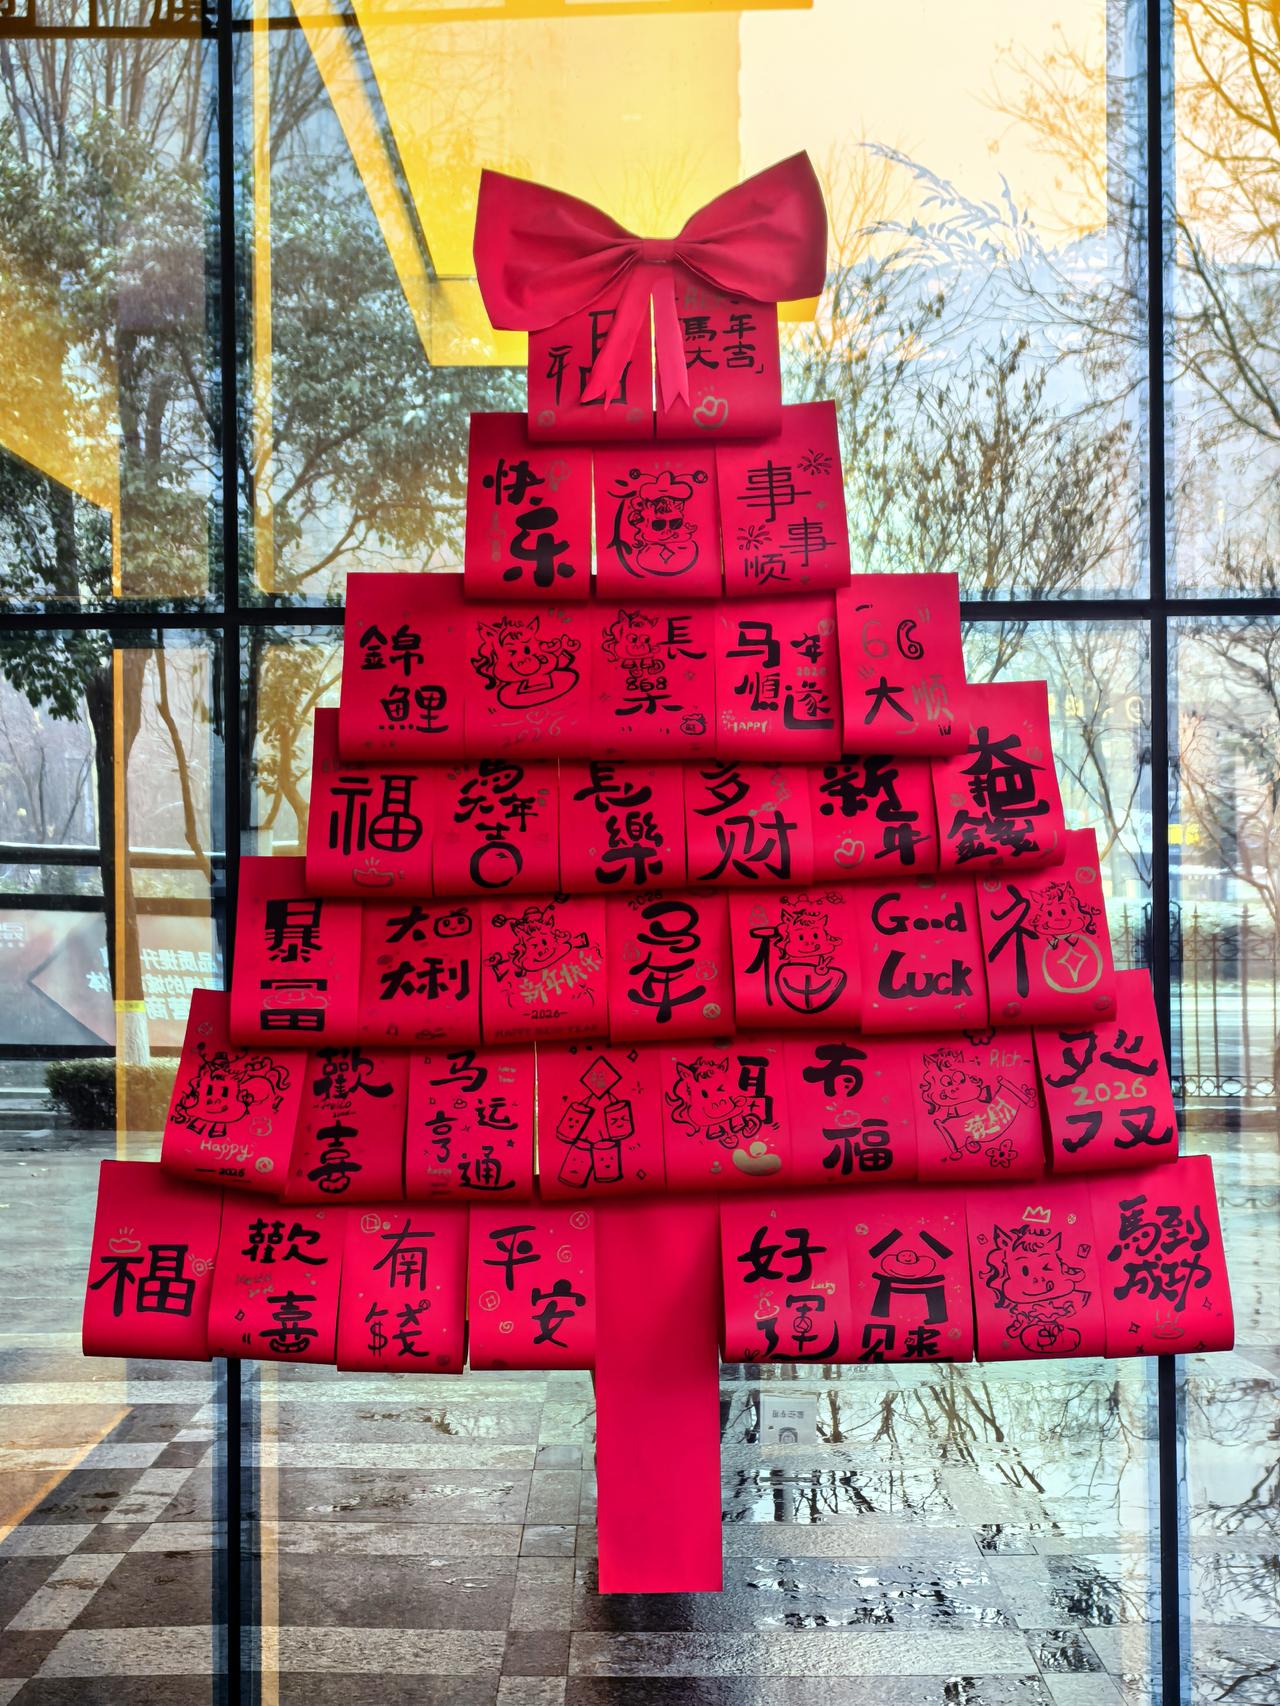 馬年
大吉
快乐
事事顺
錦鯉
長樂
马年
2026
順遂
HAPPY
66
大顺
2026
福
馬年
大吉
長樂
多财
新年
暴富
大吉
大利
新年快乐
-2026-
HAPPY NEW YEAR
2026
马年
福
Good
Luck
Happy
2026
歡喜
马运
亨通
有福
Rich
2026
福
歡喜
有錢
平安
好運
Lucky
馬到
成功
品质提升